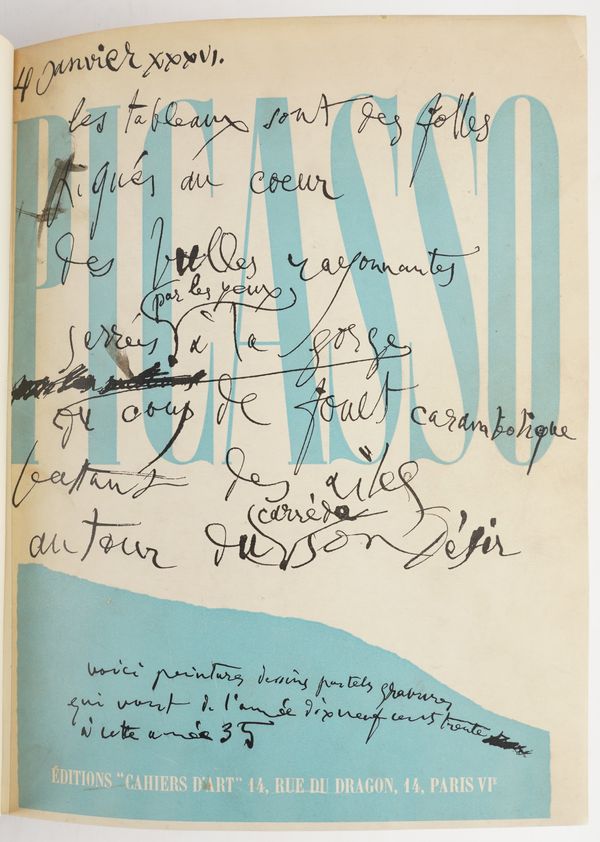 4 Janvier XXXVI.
PICASSO
les tableaux sont des folles
du coeur
des bulles rayonnantes
par les yeux
serrées à la gorge
coup de fouet carambolique
battant des ailes
carré de
autour du son désir
voici peintures dessins pastels gravures
qui vont de l'année dix neuf cent trente
à cette année 35
ÉDITIONS "CAHIERS D'ART" 14, RUE DU DRAGON, 14, PARIS VIe